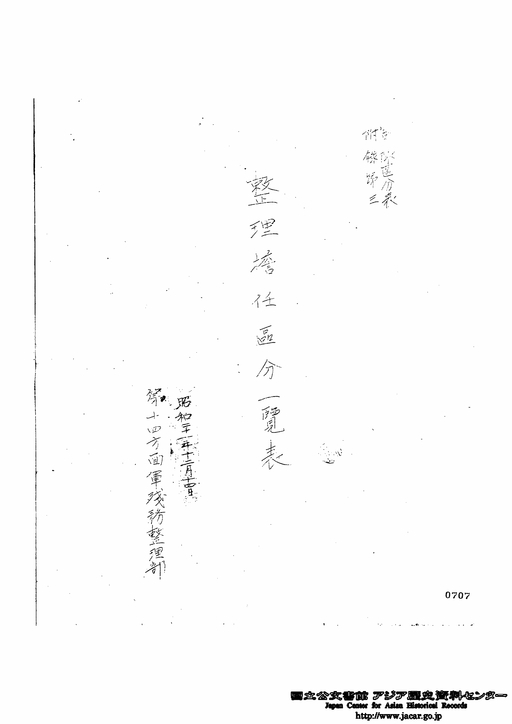 区分表
附録第三
整理擔任區分一覧表
昭和二十一年十二月十四日
第十四方面軍残務整理部
0707
国立公文書館 アジア歴史資料センター
Japan Center for Asian Historical Records
http://www.jacar.go.jp